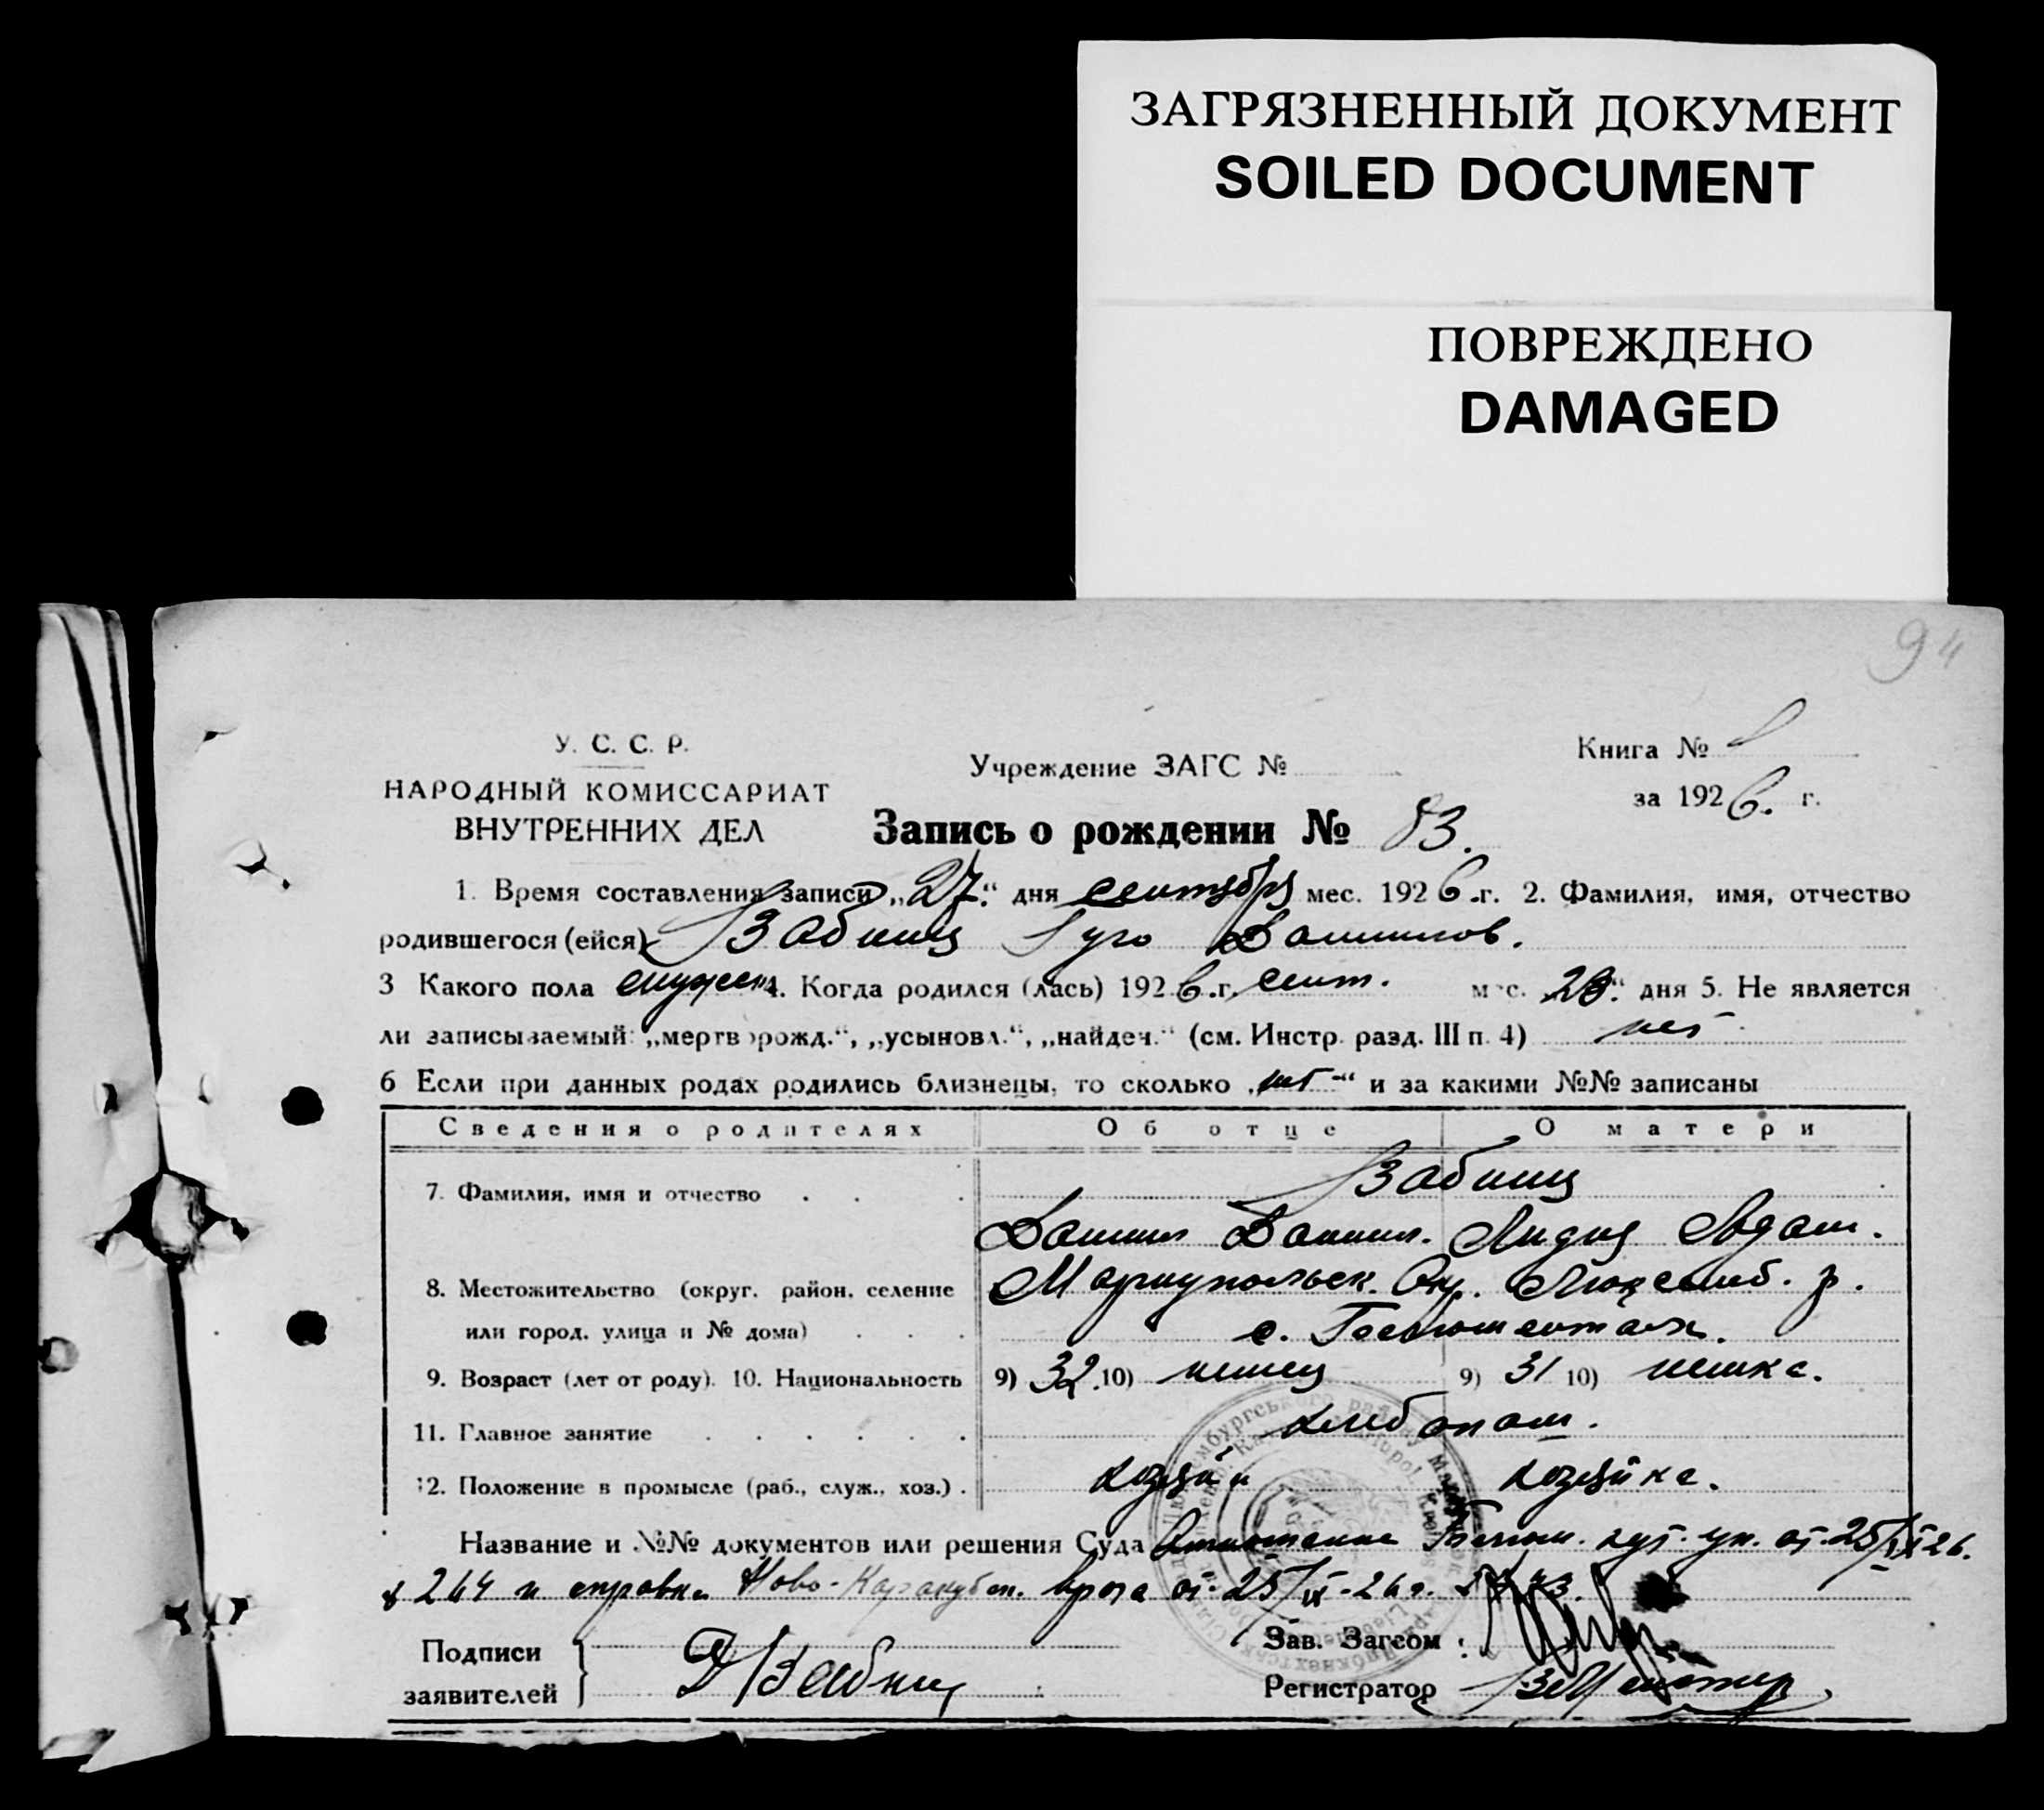 ЗАГРЯЗНЕННЫЙ ДОКУМЕНТ
SOILED DOCUMENT
ПОВРЕЖДЕНО
DAMAGED
94
У. С. С. Р.
НАРОДНЫЙ КОМИССАРИАТ
ВНУТРЕННИХ ДЕЛ
Учреждение ЗАГС №
Книга №
за 1926. г.
Запись о рождении № 83.
1. Время составления записи „27.“ дня сентября мес. 1926.г. 2. Фамилия, имя, отчество
родившегося (ейся) Забниц Гуго Даниилов.
3 Какого пола мужск 4. Когда родился (лась) 1926.г. сент. мес. 23.“ дня 5. Не является
ли записываемый: „мертворожд.“, „усыновл.“, „найден.“ (см. Инстр. разд. III п. 4) нет
6 Если при данных родах родились близнецы, то сколько „нет-“ и за какими №№ записаны
Сведения о родителях Об отце О матери
7. Фамилия, имя и отчество Забниц
Даниил Даниил. Лидия Адам.
8. Местожительство (округ, район, селение Мариупольск. Окр. Люксемб. р.
или город, улица и № дома) с.
9. Возраст (лет от роду). 10. Национальность 9) 32. 10) немец 9) 31 10) немка.
11. Главное занятие хлебопаш.
12. Положение в промысле (раб., служ., хоз.). хозяин хозяйка.
Название и №№ документов или решения Суда от 25/IX 26.
№ 264 и справка Ново-Каракубск. врача от 25/IX-26г. №
Подписи
заявителей Д Забниц
Зав. Загсом:
Регистратор